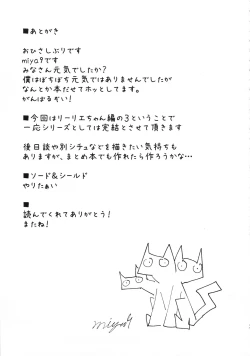 ■あとがき
おひさしぶりです
miya9です
みなさん元気でしたか?
僕はぼちぼち元気ではありませんでしたが
なんとか本だせてホッとしてます。
がんばるかい!
■今回はリーリエちゃん編の3ということで
一応シリーズとしては完結とさせて頂きます
後日談や別シチュなどを描きたい気持ちも
ありますが、まとめ本でも作れたら作ろうかな…
■ソード&シールド
やりたぁい
■
読んでくれてありがとう!
またね!
miya9